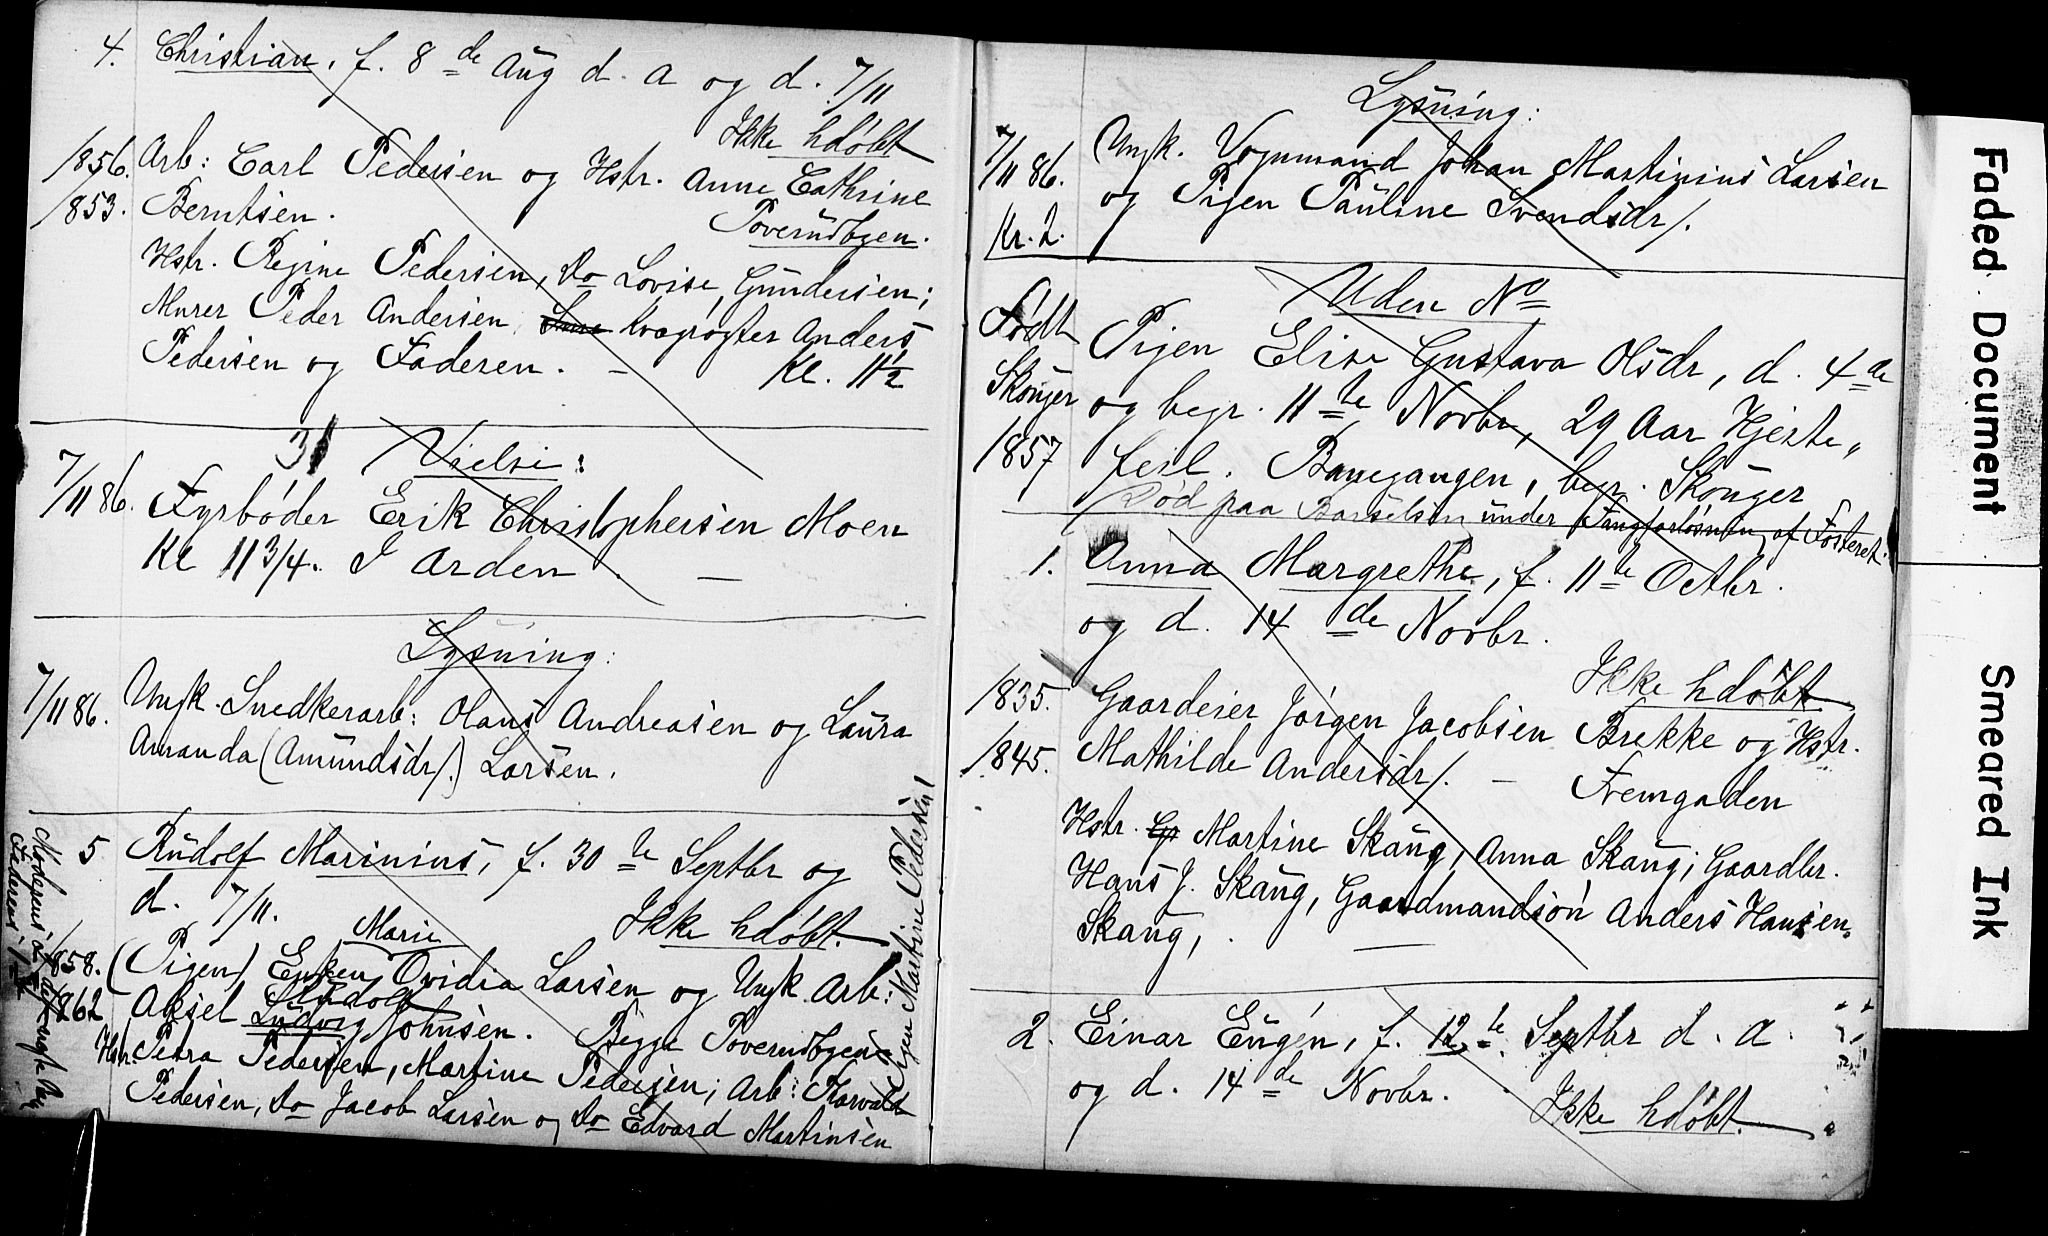 4. Christian, f. 8de Aug d. a og d. 7/11
Ikke hdøbt
1856. Arb: Carl Pedersen og Hstr. Anne Cathrine
1853. Berntsen. Poverudbgen.
Hstr. Regine Pedersen, Do Lovise Gundersen;
Murer Peder Andersen, Kvægrøgter Anders
Pedersen og Faderen. – Kl. 11½
31 Vielse:
7/11 86. Fyrbøder Erik Christophersen Moen
Kl 11 3/4. I Orden. —
Lysning:
7/11 86. Ungk. Snedkerarb: Olaus Andreasen og Laura
Amanda (Amundsdr/.) Larsen.
5 Rudolf Marinius, f. 30te Septbr og
d. 7/11. Ikke hdøbt.
Marie
1858. (Pigen) Enken Ovidia Larsen og Ungk. Arb:
1862 Aksel Ludvig Johnsen. Begge Poverudbgen
Rudolf
Hstr. Petra Pedersen, Martine Pedersen; Arb: Harvald
Pedersen, Do Jacob Larsen og Do Edvard Martinsen
Pigen Martine Pedersen
Moderens 2det
Faderens 1ste
Lysning:
7/11 86. Ungk. Vognmand Johan Martinius Larsen
og Pigen Pauline Svendsdr/.
Kr. 2.
Uden No
Født Pigen Elise Gustava Olsdr, d. 4de
Skouger og begr. 11te Novbr, 29 Aar Hjerte„
1857 feil. Banegangen, begr. Skouger
Død paa Barselseng under Tangforløsning af Fosteret.
1. Anna Margrethe, f. 11te Octbr.
og d. 14de Novbr.
Ikke hdøbt
1835. Gaardeier Jørgen Jacobsen Brekke og Hstr.
1845. Mathilde Andersdr/. – Fremgaden
Hstr. Martine Skaug, Anna Skaug; Gaardbr.
Hans J. Skaug, Gaardmandsøn Anders Hansen
Skaug, . —
2. Einar Eugén, f. 12te Septbr d. a.
og d. 14de Novbr.
Ikke hdøbt.
Faded Document
Smeared Ink